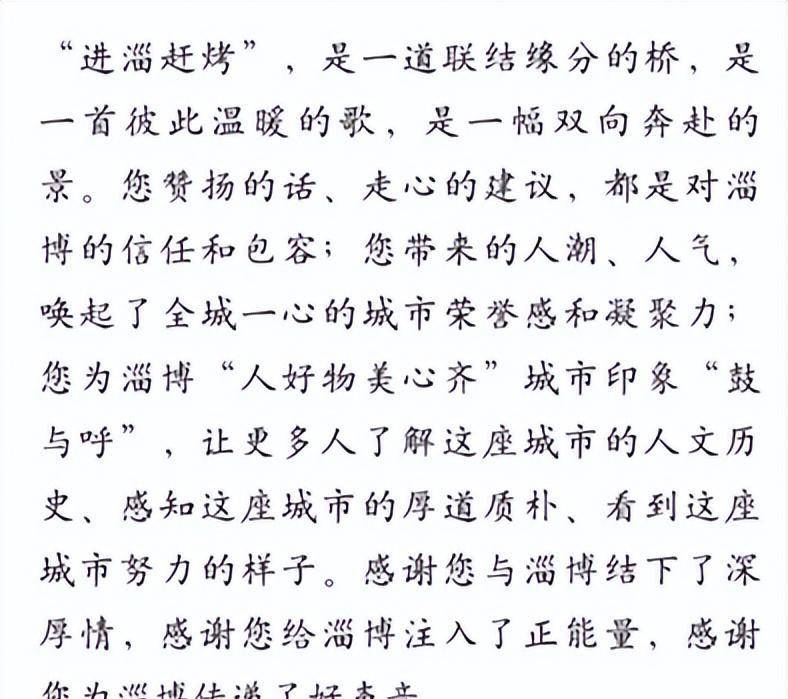 “进淄赶烤”，是一道联结缘分的桥，是
一首彼此温暖的歌，是一幅双向奔赴的
景。您赞扬的话、走心的建议，都是对淄
博的信任和包容；您带来的人潮、人气，
唤起了全城一心的城市荣誉感和凝聚力；
您为淄博“人好物美心齐”城市印象“鼓
与呼”，让更多人了解这座城市的人文历
史、感知这座城市的厚道质朴、看到这座
城市努力的样子。感谢您与淄博结下了深
厚情，感谢您给淄博注入了正能量，感谢
您为淄博传递了好声音